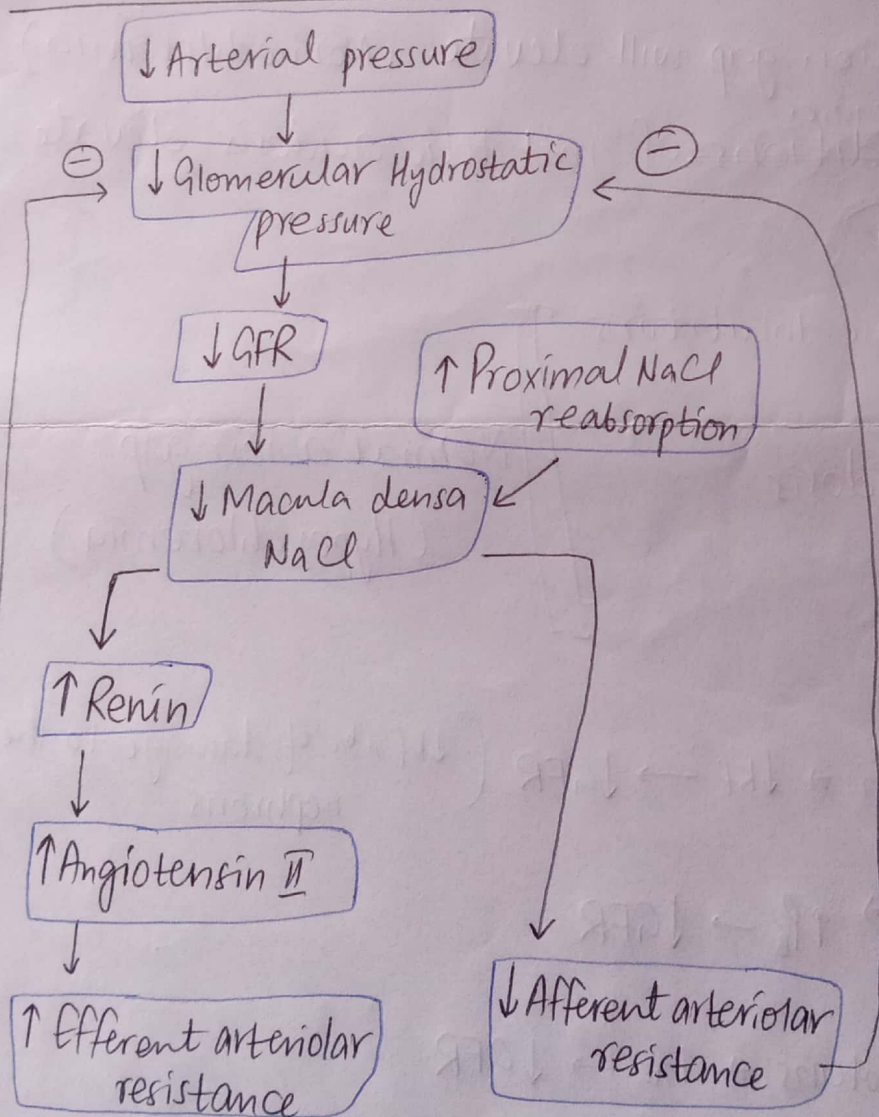 ↓ Arterial pressure
⊖
↓ Glomerular Hydrostatic
pressure
⊖
↓ GFR
↑ Proximal NaCl
reabsorption
↓ Macula densa
NaCl
↑ Renin
↑ Angiotensin II
↑ Efferent arteriolar
resistance
↓ Afferent arteriolar
resistance